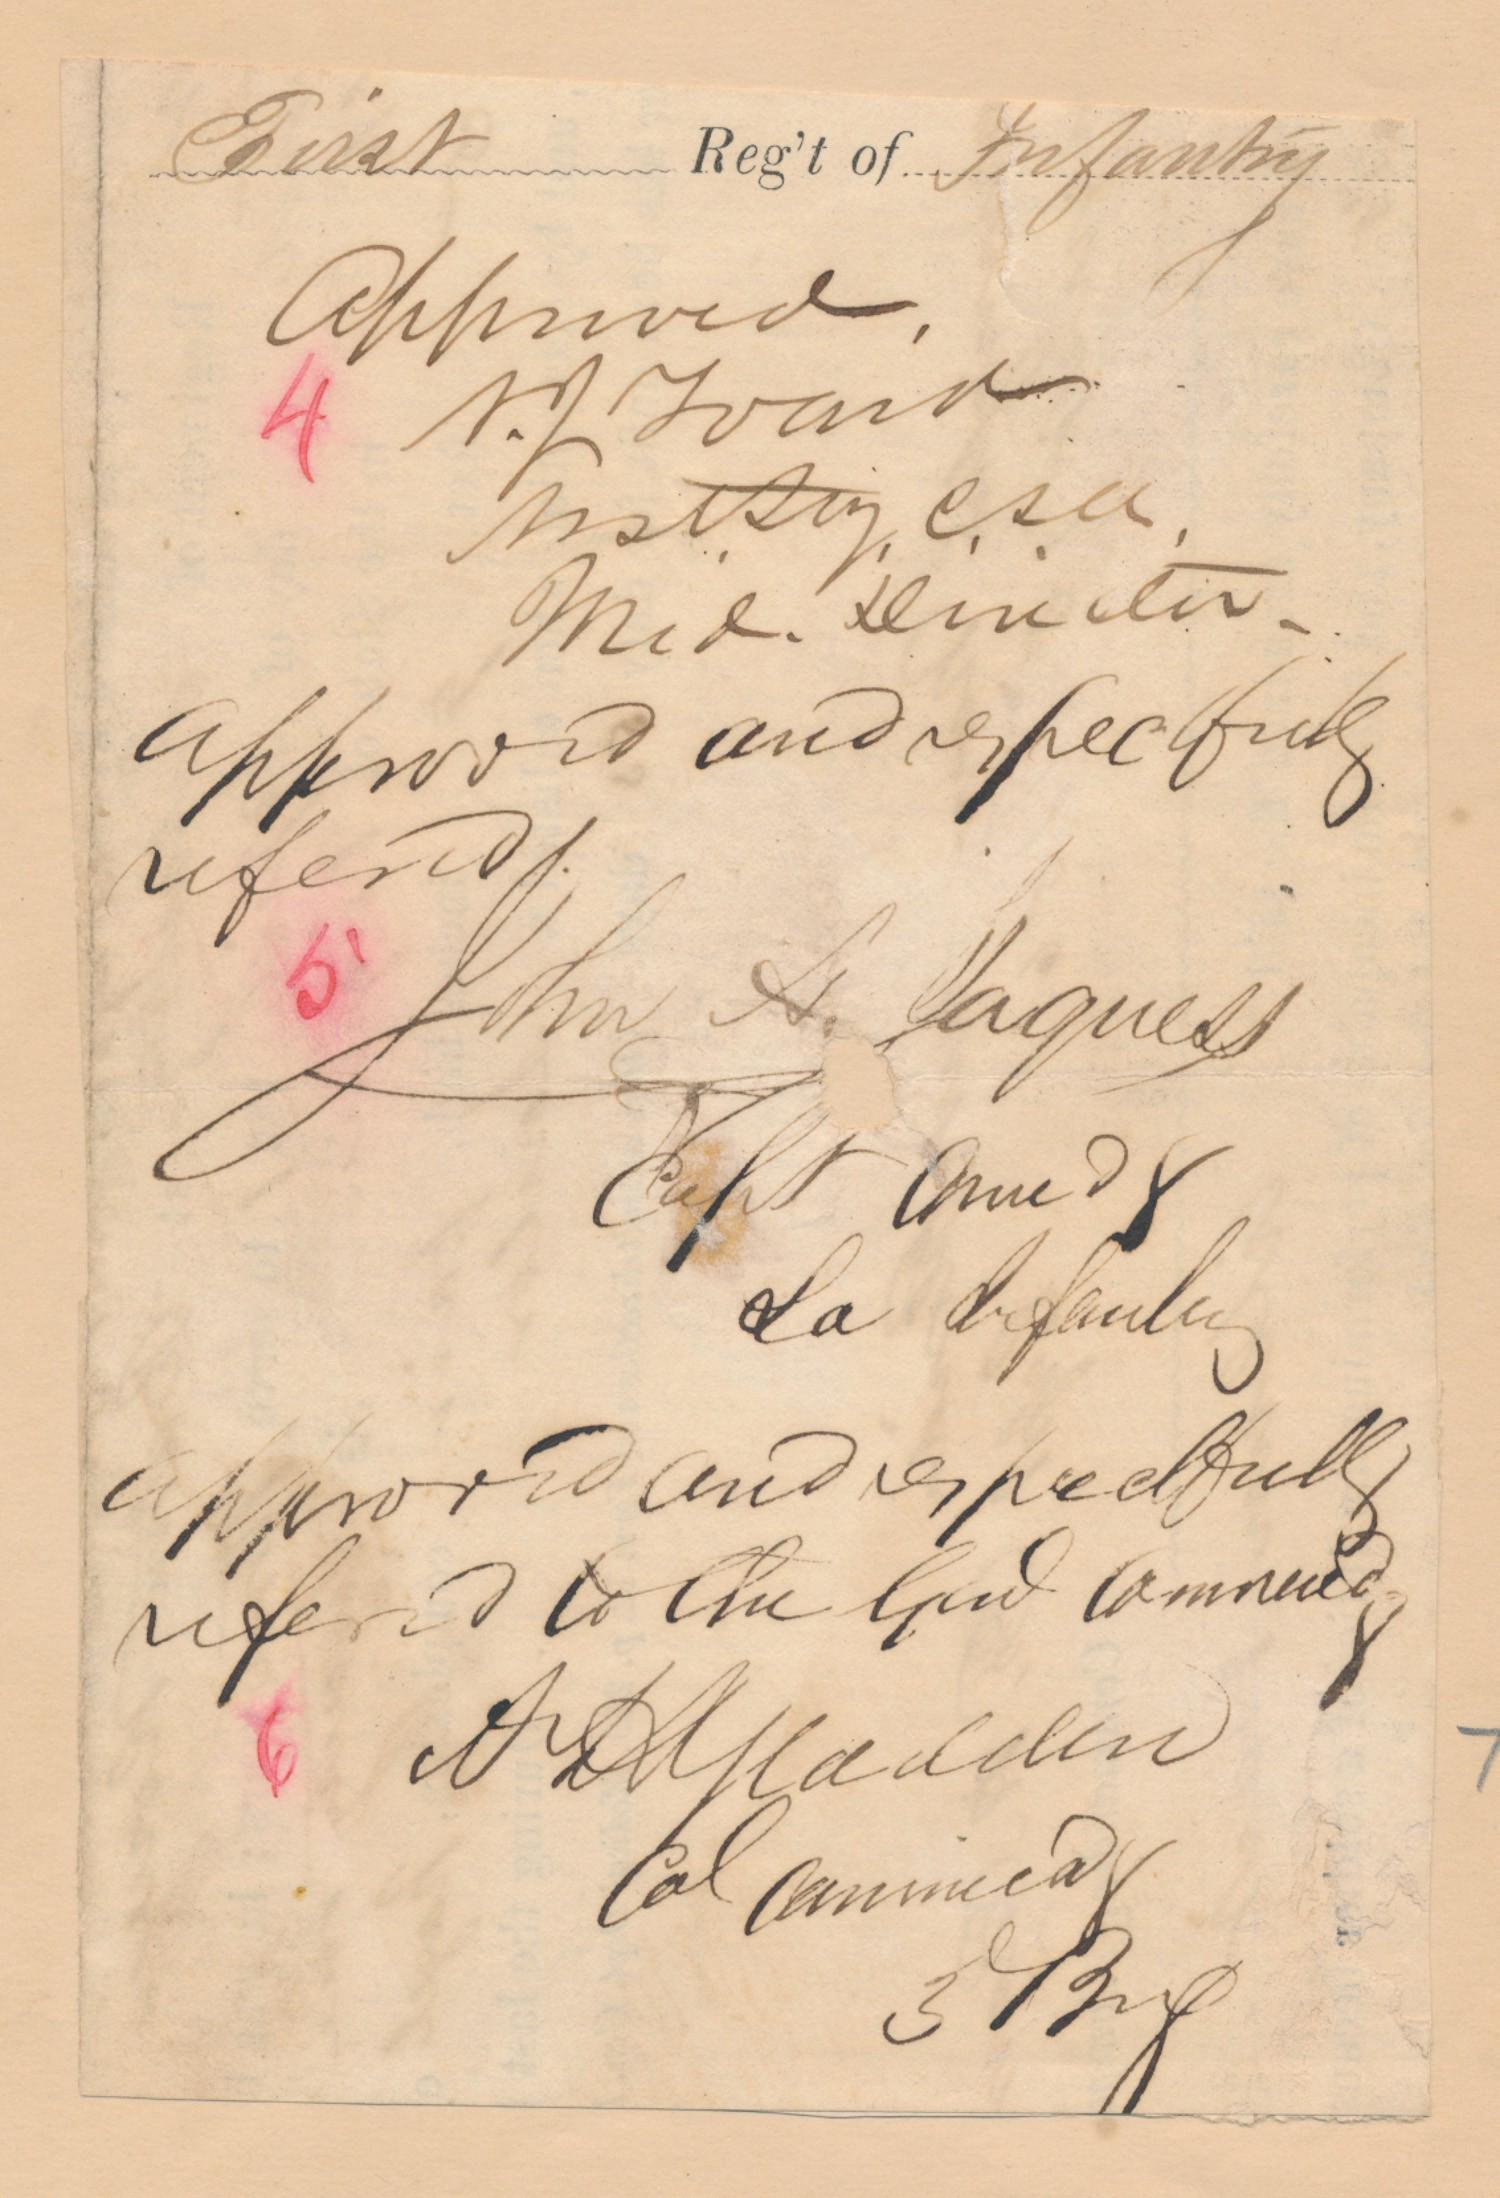 First Reg't of Infantry
Approved,
4
Med. Director
approvd and respectfuly
referd
5
John A. Jaquess
Capt Comdg
La Infantry
approvd and respectfully
referd to the Genl Commdg
6
Madden
Col commdg
3d Brig
7